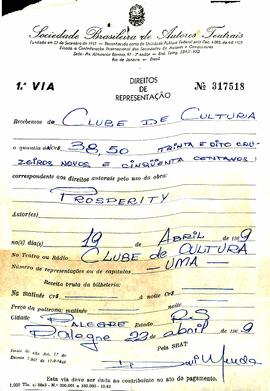 Sociedade Brasileira de Autores Teatrais
Fundada em 27 de Setembro de 1917 — Reconhecida como de Utilidade Pública Federal pelo Dec. 4.092, de 4-8-1929
Filiada à Confederação Internacional das Sociedades de Autores e Compositores
Séde: Av. Almirante Barroso, 97 - 3.º andar — End. Teleg. SBAT - RIO
Rio de Janeiro — Brasil
1.ª VIA
DIREITOS
DE
REPRESENTAÇÃO
Nº 317518
Recebemos de CLUBE DE CULTURA
a quantia de NCr$ 38,50 TRINTA E OITO CRU-
ZEIROS NOVOS E CINQUENTA CENTAVOS
correspondente aos direitos autorais pelo uso da obra:
PROSPERITY
Autor(es)
no(s) dia(s) 19 de ABRIL de 1969
No Teatro ou Rádio: CLUBE de CULTURA
Número de representações ou de capítulos UMA
Receita bruta da bilheteria:
Ng Matinée Cr$
Preço da poltrona: matinée Cr$
Cidade PALEGRE Estado RS
PAlegre 22 de abril de 1969
Pela SBAT
Esta via deve ser dada ao contribuinte no ato do pagamento.